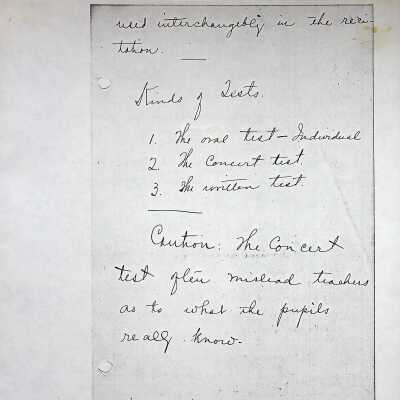 used interchangebly in the reci-
tation.
Kinds of Tests.
1. The oral test – Individual
2. The Concert test
3. The written test.
Caution: The Concert
test often mislead teachers
as to what the pupils
really know.